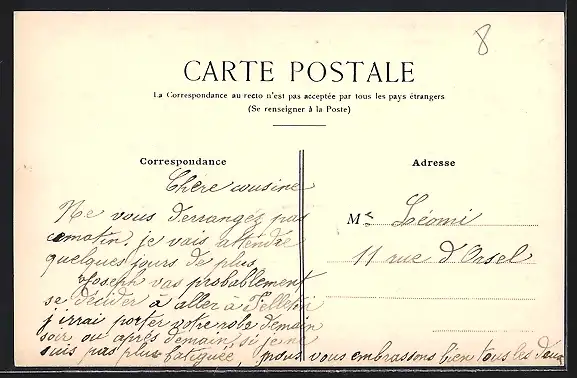 8
CARTE POSTALE
La Correspondance au recto n'est pas acceptée par tous les pays étrangers
(Se renseigner à la Poste)
Correspondance
Adresse
Chère cousine
Ne vous derrangéz pas
cematin, je vais attendre
quelques jours de plus
Joseph vas probablement
se décider à aller à
j'irrai porter votre robe demain
soir ou après demain, si je ne
suis pas plus fatiguée, nous vous embrassons bien tous les deux
M Léomi
11 rue d'Orsel